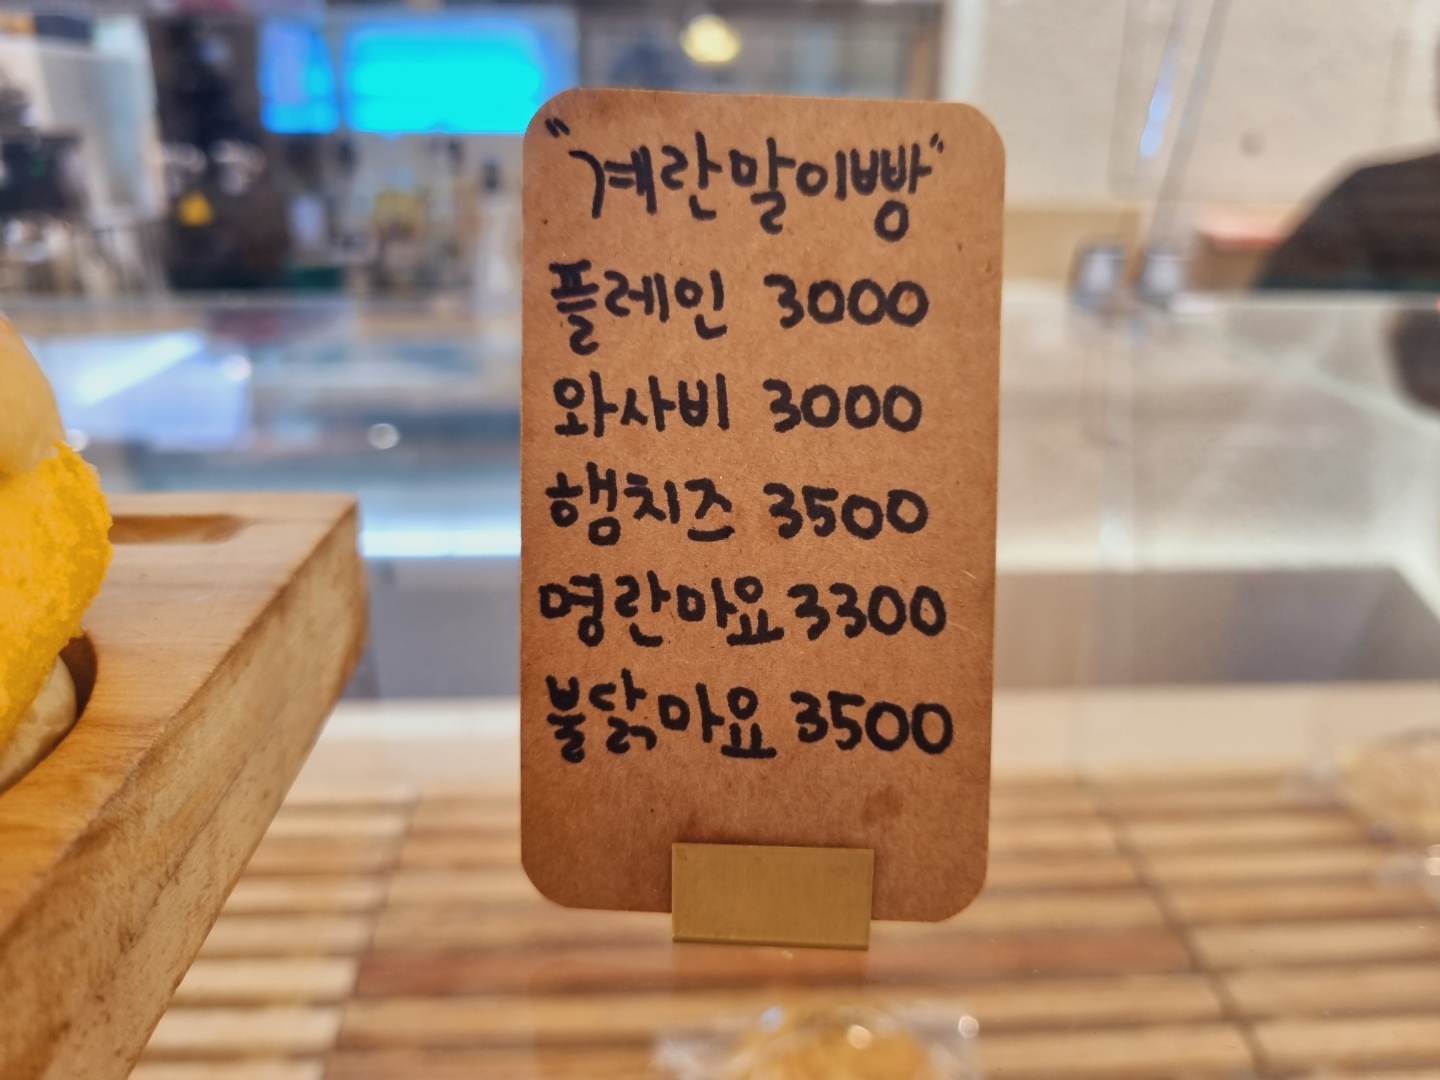 "계란말이빵"
플레인 3000
와사비 3000
햄치즈 3500
명란마요 3300
불닭마요 3500